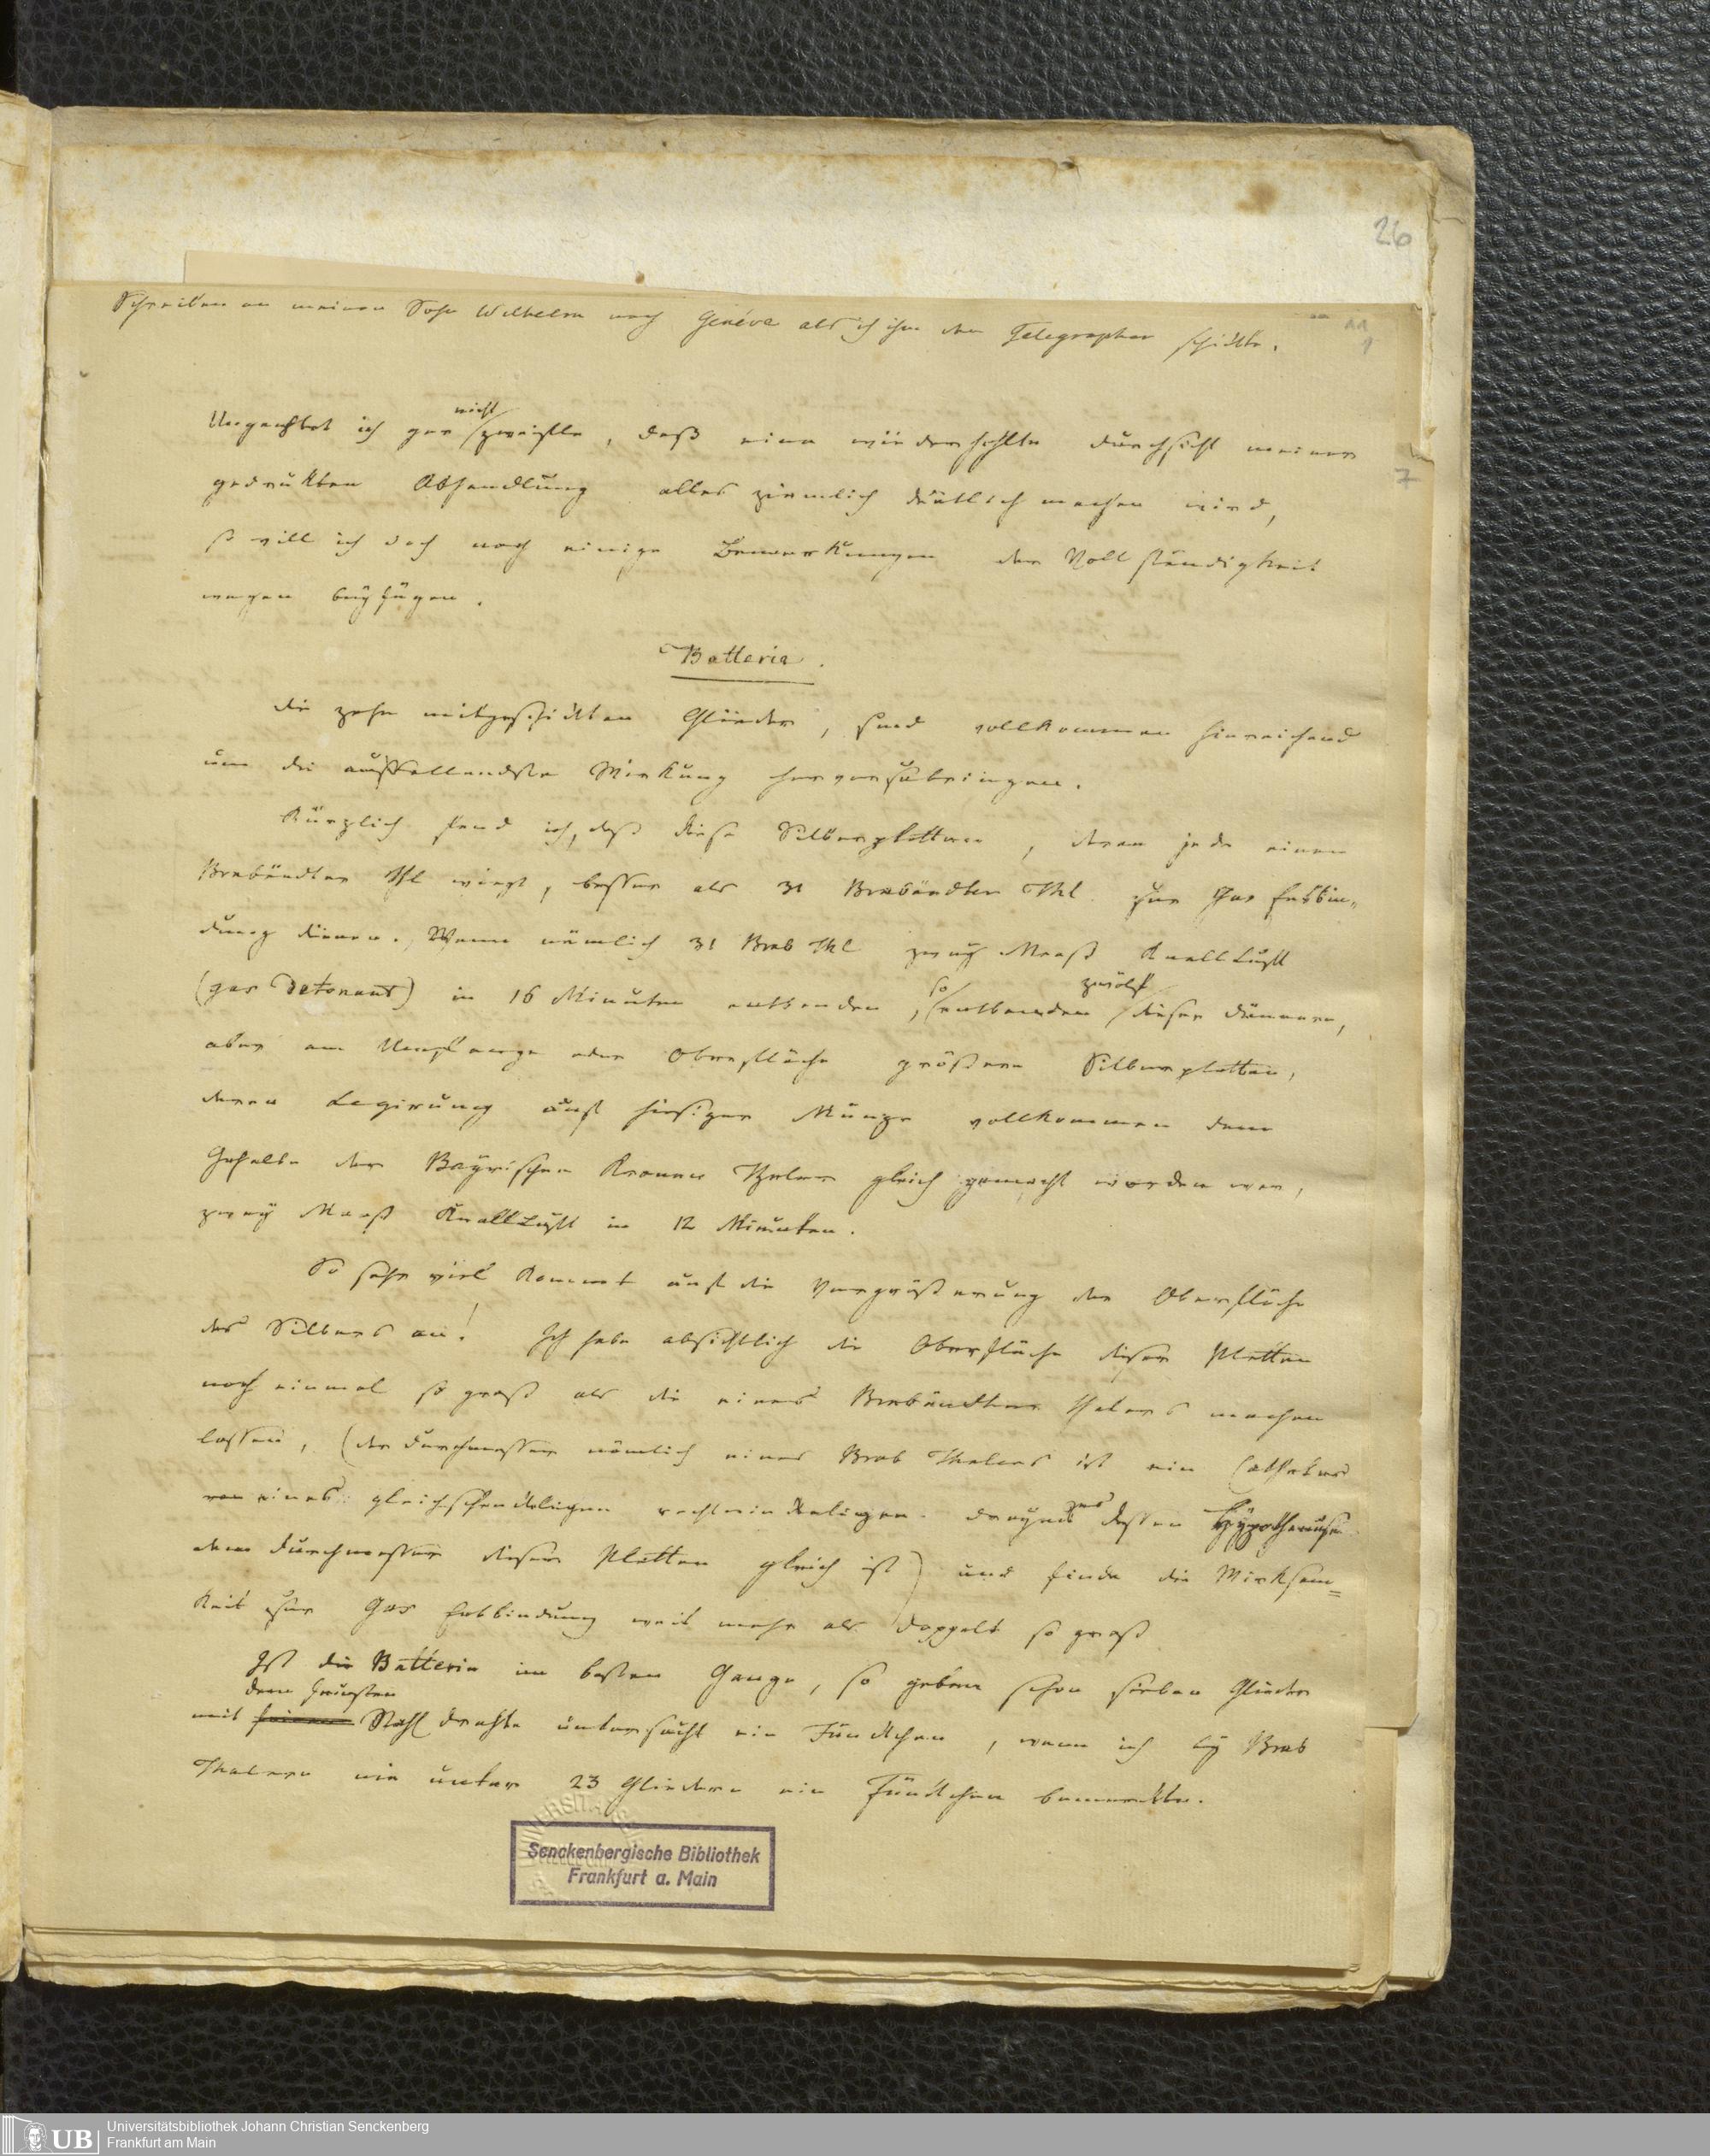 26
Schreiben an meinen Sohn Wilhelm nach Genéve als ich ihm den Telegraphen schickte.
11
1
nicht
Ungeachtet ich gar zweifle, daß eine wiederhohlte Durchsicht meiner
7
gedruckten Abhandlung alles ziemlich deütlich machen wird,
so will ich doch noch einige Bemerkungen der Vollständigkeit
wegen beyfügen.
Batterie.
Die zehn mitgeschickten Glieder, sind vollkommen hinreichend
um die auffallendste Wirkung hervorzubringen.
Kürzlich fand ich, daß diese Silberplatten, deren jede einen
Brabändter Thl wiegt, besser als 31 Brabändter Thl zur Gas Entbin-
dung dienen. Wenn nämlich 31 Brab Thl zwey Maaß KnallLuft
so zwölf
(gas Detonant) in 16 Minuten entbanden, entbanden dieser dünnern,
aber am Umfange oder Oberfläche größern Silberplatten,
deren Legirung auf hiesiger Münze vollkommen dem
Gehalte der Bayrischen Kronen Thaler gleich gemacht worden war,
zwey Maaß KnallLuft in 12 Minuten.
So sehr viel kommt auf die Vergrößerung der Oberfläche
des Silbers an! Ich habe absichtlich die Oberfläche dieser Platten
noch einmal so groß als die eines Brabändter Thalers machen
lassen, (der Durchmesser nämlich eines Brab Thalers ist ein Cathetus
eines gleichschenckligen rechtwinckligen Dreyecks dessen Hypothenuse
dem Durchmesser dieser Platten gleich ist) und finde die Wirksam-
keit zur Gas Entbindung weit mehr als doppelt so groß
Ist die Batterie im besten Gange, so geben schon sieben Glieder
dem feinsten
mit Stahl drahte untersucht ein Fünckchen, wenn ich bey Brab
Thalern nie unter 23 Gliedern ein Fünckchen bemerckte.
Senckenbergische Bibliothek
Frankfurt a. Main
UB
Universitätsbibliothek Johann Christian Senckenberg
Frankfurt am Main